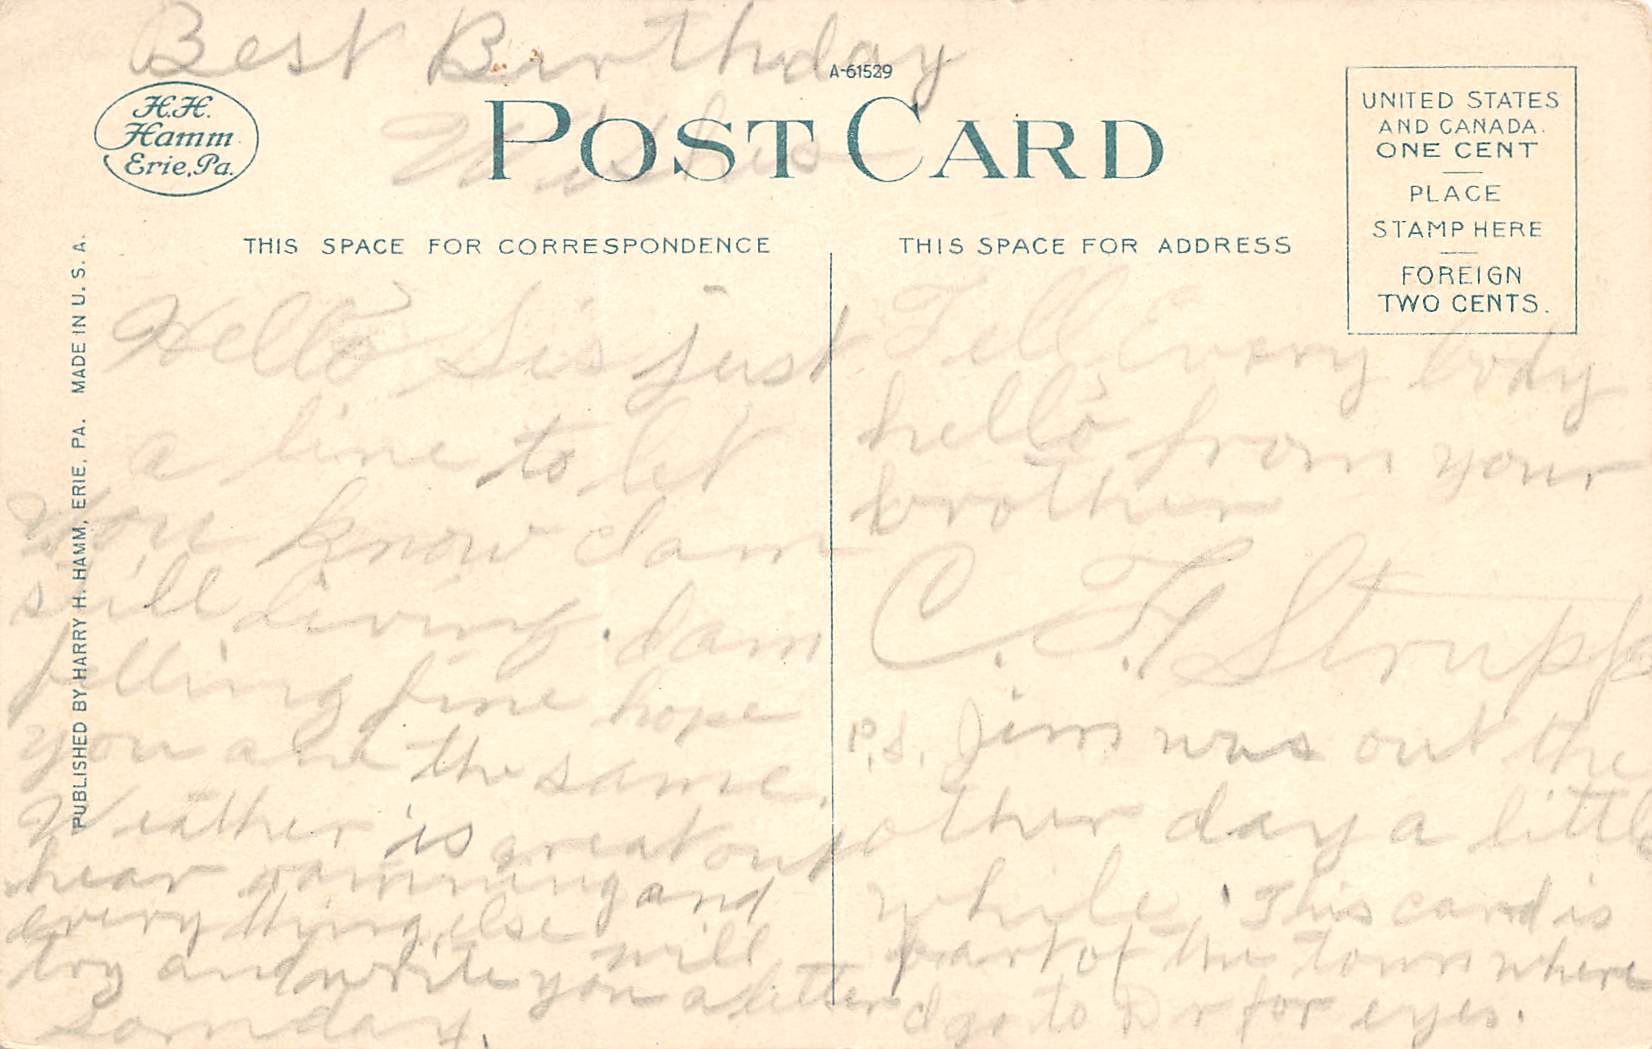 Best Birthday
Wishes
A-61529
H.H.
Hamm
Erie, Pa.
POST CARD
UNITED STATES
AND CANADA.
ONE CENT
PLACE
STAMP HERE
FOREIGN
TWO CENTS.
THIS SPACE FOR CORRESPONDENCE
THIS SPACE FOR ADDRESS
PUBLISHED BY HARRY H. HAMM, ERIE, PA. MADE IN U. S. A.
Hello Sis just
a line to let
you know I am
still living. I am
felling fine hope
you are the same.
Weather is great out
hear raining and
every thing else will
try and write you a letter
Somday.
Tell Every body
hello from your
brother
C. F. Strupp
P.S. Jim was out the
other day a little
while. This card is
part of the town where
I go to Dr for eyes.